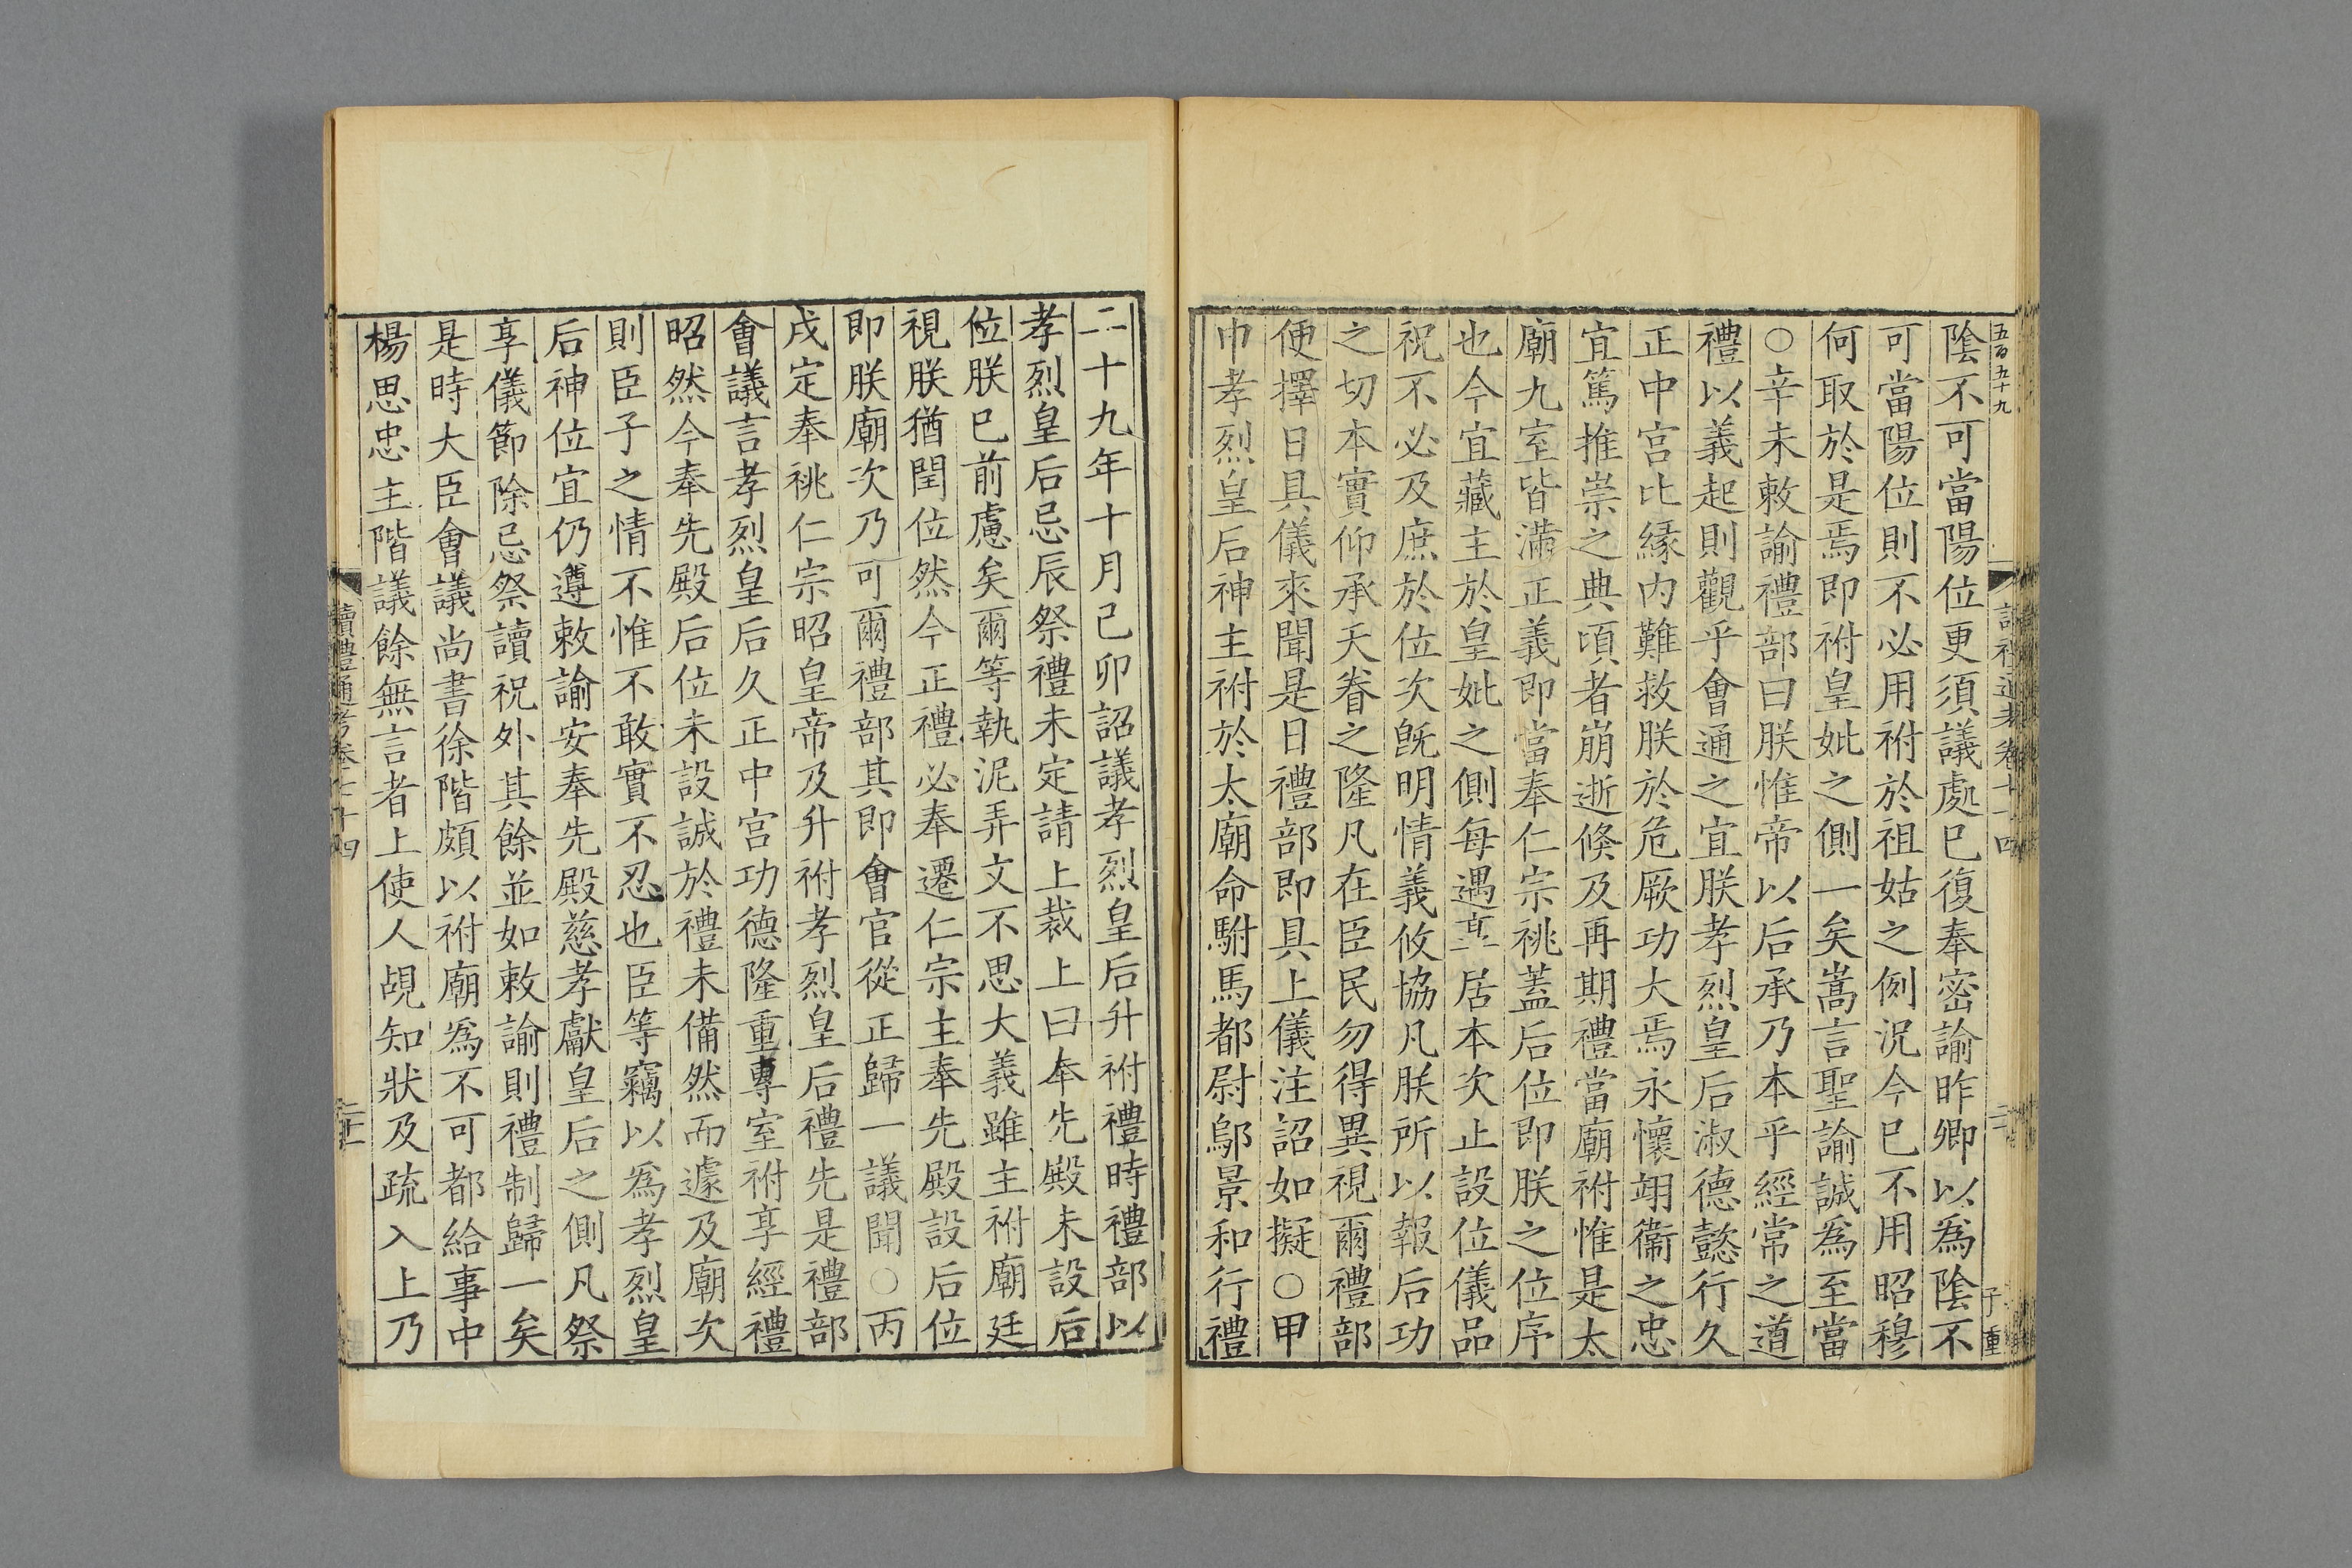 五百五十九
讀禮通考卷七十四
二十
子重
陰不可當陽位更須議處已復奉密諭昨卿以為陰不
可當陽位則不必用祔於祖姑之例況今已不用昭穆
何取於是焉即祔皇妣之側一矣嵩言聖諭誠為至當
○辛未敕諭禮部曰朕惟帝以后承乃本乎經常之道
禮以義起則觀乎會通之宜朕孝烈皇后淑德懿行久
正中宮比緣內難救朕於危厥功大焉永懷翊衞之忠
宜篤推崇之典頃者崩逝倐及再期禮當廟祔惟是太
廟九室皆滿正義即當奉仁宗祧蓋后位即朕之位序
也今宜藏主於皇妣之側每遇享居本次止設位儀品
祝不必及庶於位次旣明情義攸協凡朕所以報后功
之切本實仰承天眷之隆凡在臣民勿得異視爾禮部
便擇日具儀來聞是日禮部即具上儀注詔如擬○甲
申孝烈皇后神主祔於太廟命駙馬都尉鄔景和行禮
二十九年十月己卯詔議孝烈皇后升祔禮時禮部以
孝烈皇后忌辰祭禮未定請上裁上曰奉先殿未設后
位朕已前慮矣爾等執泥弄文不思大義雖主祔廟廷
視朕猶閏位然今正禮必奉遷仁宗主奉先殿設后位
即朕廟次乃可爾禮部其即會官從正歸一議聞○丙
戌定奉祧仁宗昭皇帝及升祔孝烈皇后禮先是禮部
會議言孝烈皇后久正中宮功德隆重專室祔享經禮
昭然今奉先殿后位未設誠於禮未備然而遽及廟次
則臣子之情不惟不敢實不忍也臣等竊以為孝烈皇
后神位宜仍遵敕諭安奉先殿慈孝獻皇后之側凡祭
享儀節除忌祭讀祝外其餘並如敕諭則禮制歸一矣
是時大臣會議尚書徐階頗以祔廟為不可都給事中
楊思忠主階議餘無言者上使人覘知狀及疏入上乃
讀禮通考卷七十四